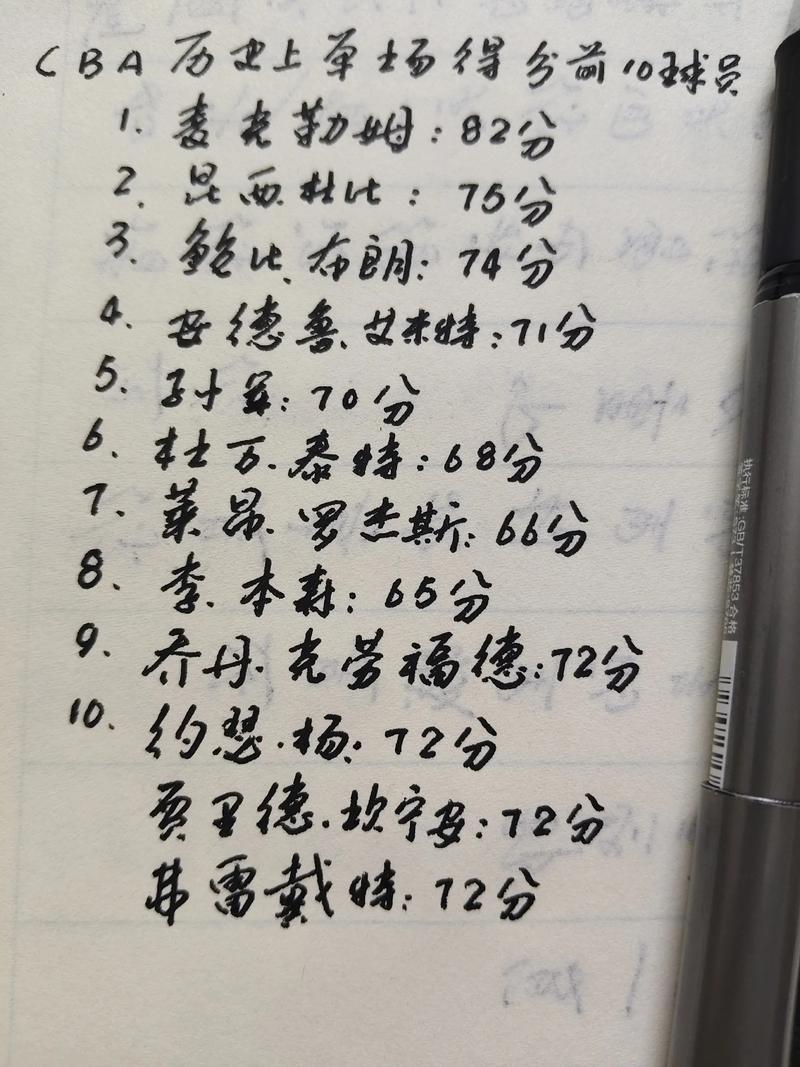 CBA 历史上单场得分前10球员
1. 麦克勒姆:82分
2. 昆西杜比:75分
3. 鲍比、布朗:74分
4. 安德鲁.艾米特:71分
5. 孙军:70分
6. 杜万.泰特:68分
7. 莱昂.罗杰斯:66分
8. 李.本森:65分
9. 乔丹.克劳福德:72分
10. 约瑟.杨:72分
贾里德.坎宁安:72分
弗雷戴特:72分
执行标准:GB/T37853 合格